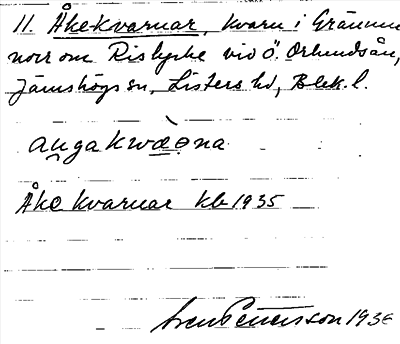 11. Åkekvarnar, kvarn i Grännum
norr om Rislycke vid Ö. Orlundsån,
Jämshögs sn, Listers hd, Blek. l.
Åke kvarnar kb 1935
Sven Petersson 1936